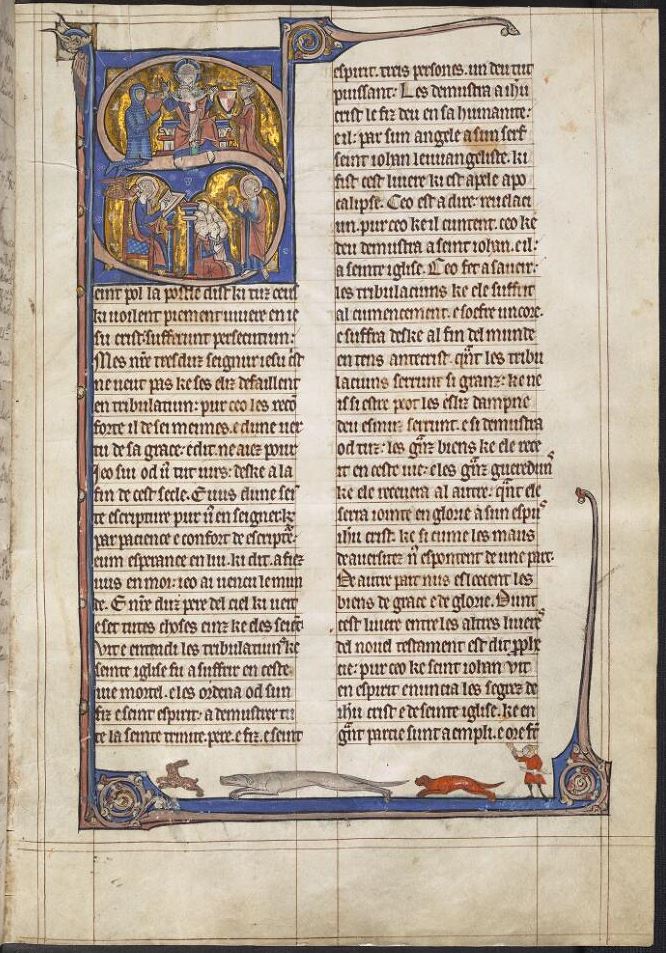 eint pol la postle dist ki tuz ceus
ki uoilent piement uiuere en ie
su crist: sufferunt persecutiun:
Mes nr̄e tresduz seignur iesu c̄st
ne ueut pas ke ses eliz defaillent
en tribulatiun: pur ceo les recū
forte il de sei meimes. e dune uer
tu de sa grace: e dit. ne aiez pour
Jeo sui od uꝰ tut iurs: deske a la
fin de cest secle. E uus dune sei
te escripture pur uꝰ enseigner: ke
par pacience e confort de escriptᵉ:
eum esperance en lui. ki dit. afiez
uus en moi: ieo ai uencu le mun
de. E nr̄e duz pere del ciel ki ueit
e set tutes choses einz ke eles seiēt
vit e entendi les tribulatiunᵉ ke
seinte iglise fu a suffrir en ceste
uie mortel. e les ordena od sun
fiz e seint espirit: a demustrer tu
te la seinte trinite. pere. e fiz. e seint
espirit. treis persones. un deu tut
puissant: Les demustra a ihū
crist le fiz deu en sa humanite:
e il: par sun angele a sun serf
seint iohan leuuangeliste. ki
fist cest liuere ki est apele apo
calipse. Ceo est a dire: reuelaci
un. pur ceo ke il cuntent. ceo ke
deu demustra a seint iohan. e il:
a seinte iglise. Ceo fet a saueir:
les tribulaciuns ke ele suffrit
al cumencement. e soefre uncore.
e suffra deske al fin del munde
en tens antecrist. qn̄t les tribu
laciuns serrunt si granz: ke ne
is si estre poet les esliz dampne
deu esmuz serrunt. e si demustra
od tuz: les gn̄z biens ke ele rece
it en ceste uie: e les gn̄z gueredunˢ
ke ele receuera al autre: qn̄t ele
serra iointe en glorie a sun espuˢ
ihū crist. ke si cume les maus
de auersitez nˢ espontent de une part.
De autre part nus esleecent les
biens de grace e de glorie. Dunt
cest liuere entre les altres liuereˢ
del nouel testament est dit p̱ph̄e
cie: pur ceo ke seint iohan vit
en espirit e nuncia les segrez de
ihū crist e de seinte iglise. ke en
gn̄t partie sunt aempli. e